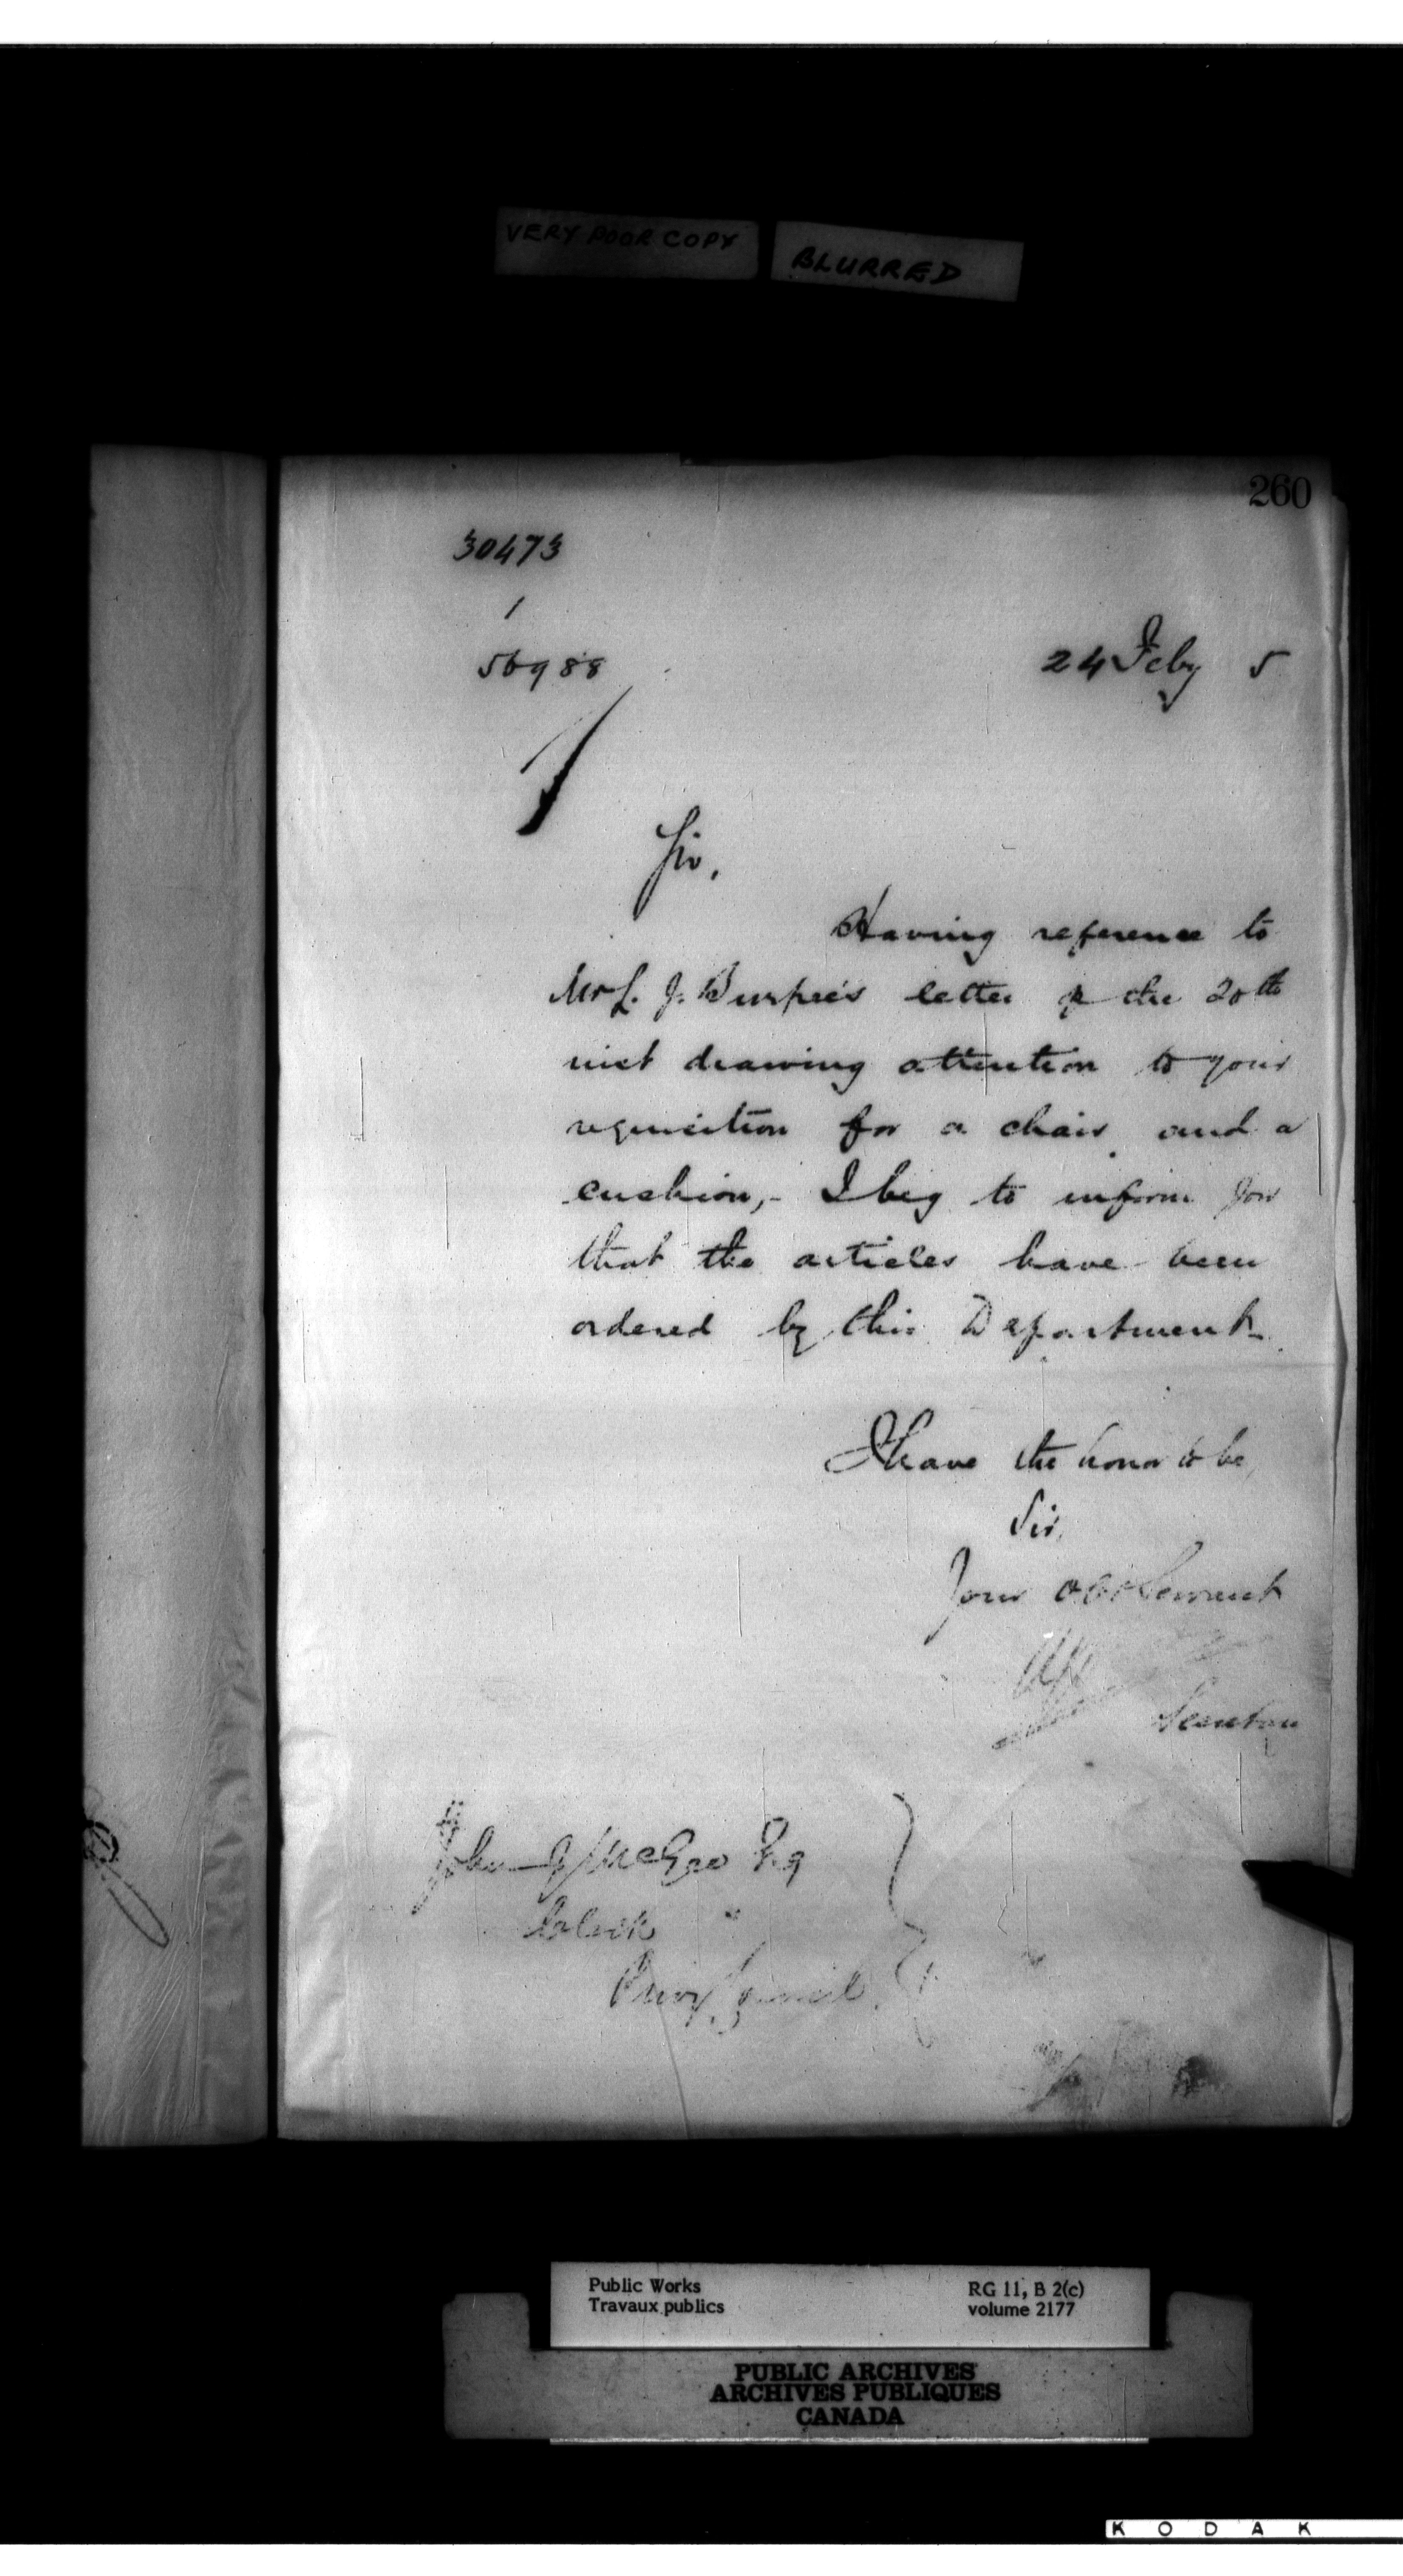 VERY POOR COPY
BLURRED
260
30473
/
56988
24 Feby 5
Sir,
Having reference to
Mr L. J. Burpee's letter of the 20th
inst drawing attention to your
requisition for a chair and a
cushion,- I beg to inform you
that the articles have been
ordered by this Department.
I have the honor to be,
Sir,
Your obt Servant
Secretary
John J McGee Esq
Clerk "
Privy Council.
Public Works
Travaux publics
RG 11, B 2(c)
volume 2177
PUBLIC ARCHIVES
ARCHIVES PUBLIQUES
CANADA
KODAK